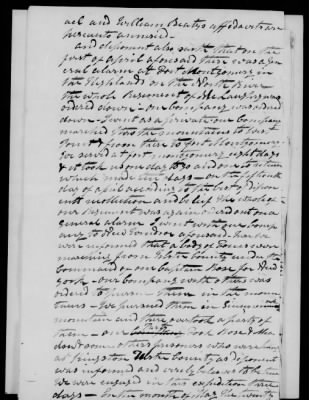 ael and William Beatys affidavits are
hereunto annexed -
and deponent also saith that on the
first of April aforesaid there was a gen
eral alarm at Fort Montgomery in
the Highlands on the North River
the whole Regiment of Militia was
ordered down - our company was ordered
down - I went as a private our company
marched thro the mountains to West
Point & from there to fort Montgomery
we served at fort montgomery eight days
& it took us one day to go and one to return
which made ten days - on the fifteenth
day of april according to the best of depon
ents recollection and belief the whole of
our Regiment was again ordered out on a
general alarm I went with our Comp
any to New Windsor aforesaid here
we were informed that a body of Tories were
marching from Ulster County under the
command of one Captain Rose for New
york - our company with others was
ordered to pursue them in the moun
tains - We pursued them in
mountain and there overtook a part of
them - our took Rose &
and some others prisoners who were hung
at Kingston Ulster County as deponent
was informed and verily believes to be true
We were engaged in this expedition three
days - In the month of May the twenty